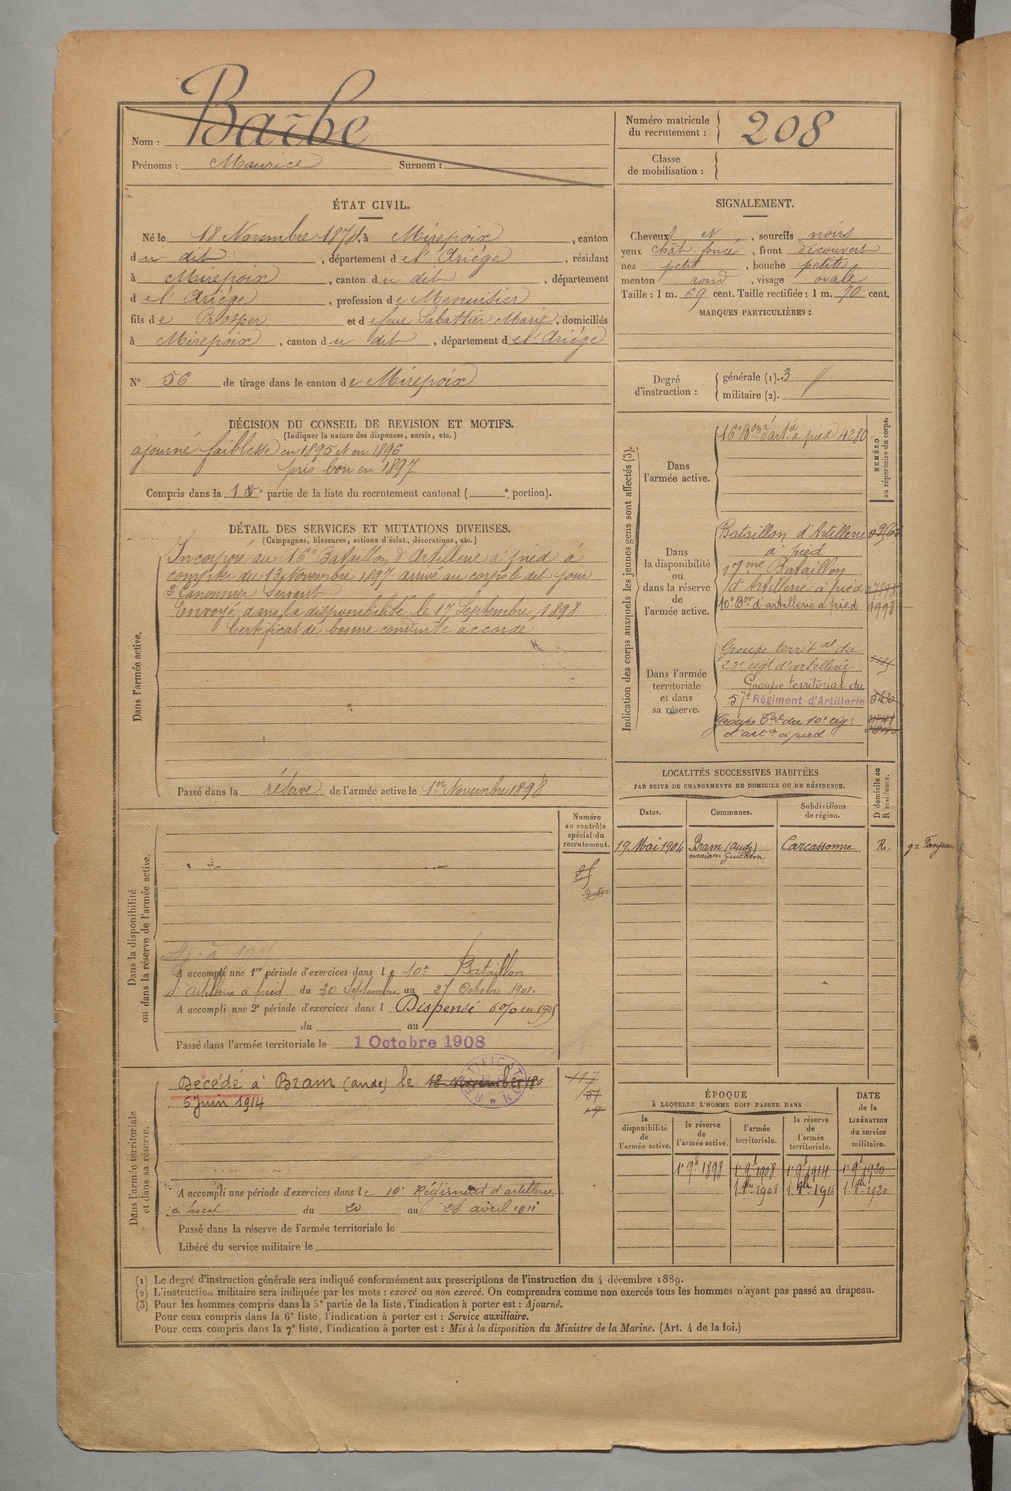 Nom : Barbe
Prénoms : Maurice Surnom :
Numéro matricule du recrutement : 208
Classe de mobilisation :
ÉTAT CIVIL.
Né le 18 Novembre 1874 à Mirepoix, canton
du dit, département de l'Ariége, résidant
à Mirepoix, canton du dit, département
de l'Ariége, profession de Menuisier
fils de Prosper et de feue Sabatthier Marie, domiciliés
à Mirepoix, canton du dit, département de l'Ariége
N° 56 de tirage dans le canton de Mirepoix
SIGNALEMENT.
Cheveux N, sourcils noirs
yeux chât foncé, front découvert
nez petit, bouche petite
menton rond, visage ovale
Taille : 1 m. 69 cent. Taille rectifiée : 1 m. 70 cent.
MARQUES PARTICULIÈRES :
Degré d'instruction : générale (1). 3
militaire (2).
DÉCISION DU CONSEIL DE REVISION ET MOTIFS.
(Indiquer la nature des dispenses, sursis, etc.)
ajourné faiblesse en 1895 et en 1896
pris bon en 1897
Compris dans la 1e partie de la liste du recrutement cantonal ( e portion).
DÉTAIL DES SERVICES ET MUTATIONS DIVERSES.
(Campagnes, blessures, actions d'éclat, décorations, etc.)
Dans l'armée active.
Incorporé au 16e Bataillon d'Artillerie à pied à
compter du 13 Novembre 1897 arrivé au corps le dit jour
2e Canonnier Servant
Envoyé dans la disponibilité le 17 Septembre 1898
Certificat de bonne conduite accordé
Passé dans la réserve de l'armée active le 1er Novembre 1898
Indication des corps auxquels les jeunes gens sont affectés (3).
NUMÉRO au répertoire du corps.
Dans l'armée active.
16e Bon d'artie à pied 4280
Dans la disponibilité ou dans la réserve de l'armée active.
Bataillon d'Artillerie
à pied
17me Bataillon
d'Artillerie à pied
10e Bon d'artillerie à pied 1998
Dans l'armée territoriale et dans sa réserve.
Groupe territal du
23e régt d'artillerie
Groupe territorial du
57e Régiment d'Artillerie
Groupe Tal du 10e rég
d'arte à pied
LOCALITÉS SUCCESSIVES HABITÉES
PAR SUITE DE CHANGEMENTS DE DOMICILE OU DE RÉSIDENCE.
Dates. Communes. Subdivisions de région. D domicile ou R résidence.
19 Mai 1904 Bram (Aude) maison Guilhem Carcassonne R.
Dans la disponibilité ou dans la réserve de l'armée active.
Numéro au contrôle spécial du recrutement.
A accompli une 1re période d'exercices dans le 10e Bataillon
d'artillerie à pied du 30 Septembre au 27 Octobre 1901.
A accompli une 2e période d'exercices dans l Dispensé 6% en 1905
du au
Passé dans l'armée territoriale le 1 Octobre 1908
Dans l'armée territoriale et dans sa réserve.
Décédé à Bram (Aude) le 18 novembre
5 juin 1914
117
A accompli une période d'exercices dans le 10e Régiment d'artillerie
à pied du 20 au 28 avril 1911
Passé dans la réserve de l'armée territoriale le
Libéré du service militaire le
ÉPOQUE
À LAQUELLE L'HOMME DOIT PASSER DANS
la disponibilité de l'armée active. la réserve de l'armée active. l'armée territoriale. la réserve de l'armée territoriale. DATE de la LIBÉRATION du service militaire.
1er 9bre 1898 1er 9bre 1908 1er 9bre 1914 1er 9bre 1920
(1) Le degré d'instruction générale sera indiqué conformément aux prescriptions de l'instruction du 4 décembre 1889.
(2) L'instruction militaire sera indiquée par les mots : exercé ou non exercé. On comprendra comme non exercés tous les hommes n'ayant pas passé au drapeau.
(3) Pour les hommes compris dans la 5e partie de la liste, l'indication à porter est : Ajourné.
Pour ceux compris dans la 6e liste, l'indication à porter est : Service auxiliaire.
Pour ceux compris dans la 7e liste, l'indication à porter est : Mis à la disposition du Ministre de la Marine. (Art. 4 de la loi.)